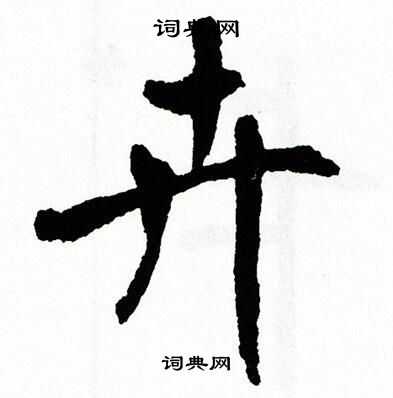 词典网
卉
词典网